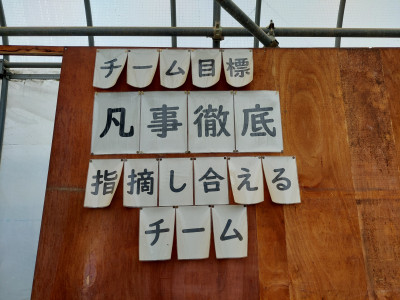 チーム目標
凡事徹底
指摘し合える
チーム